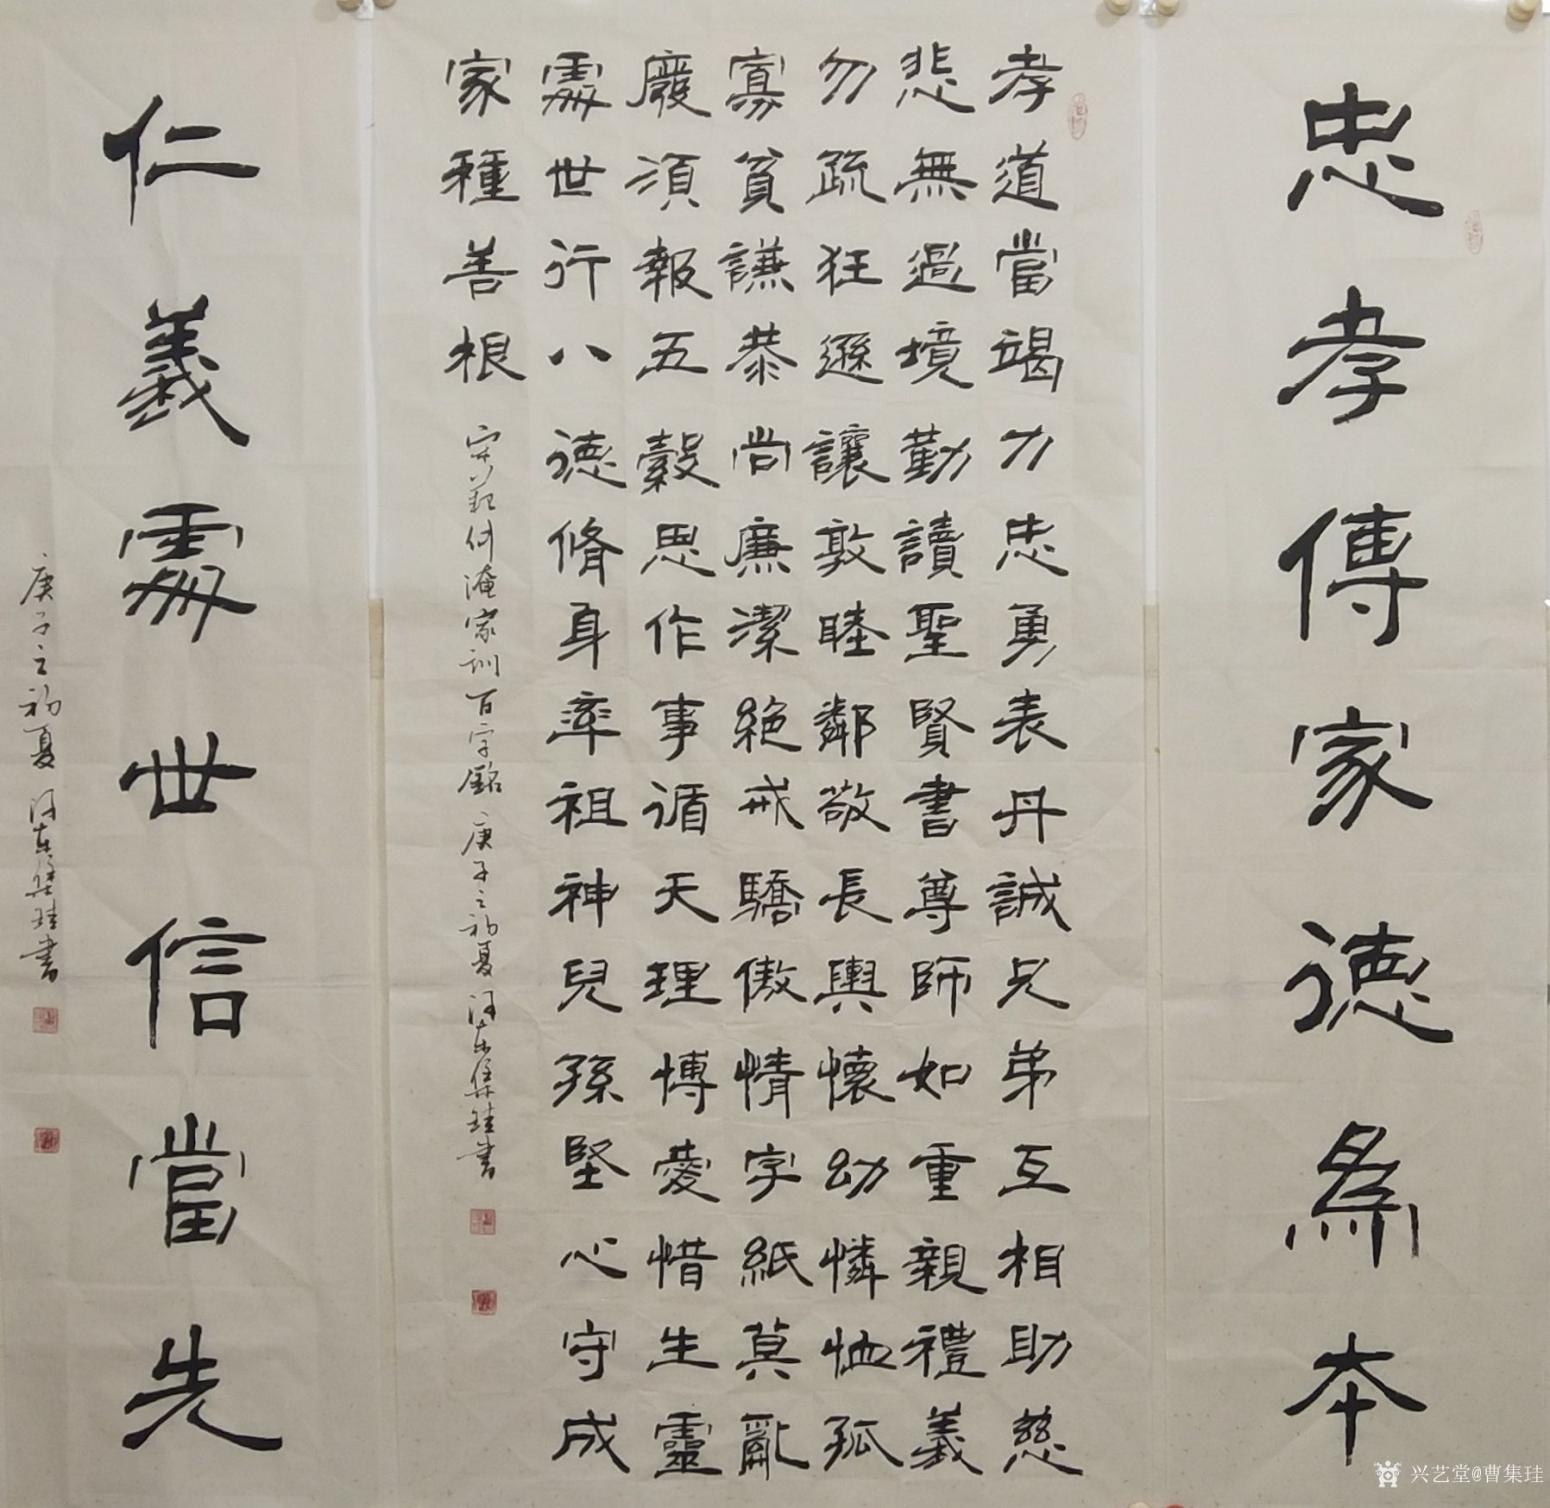 忠孝傳家德為本
孝道當竭力忠勇表丹誠兄弟互相助慈
悲無過境勤讀聖賢書尊師如重親禮義
勿疏狂遜讓敦睦鄰敬長與懷幼憐恤孤
寡貧謙恭尚廉潔絕戒驕傲情字紙莫亂
廢須報五穀恩作事循天理博愛惜生靈
處世行八德脩身率祖神兒孫堅心守成
家種善根
宋范仲淹家訓百字銘 庚子之初夏 河東集珪書
仁義處世信當先
庚子之初夏 河東集珪書
兴艺堂@曹集珪